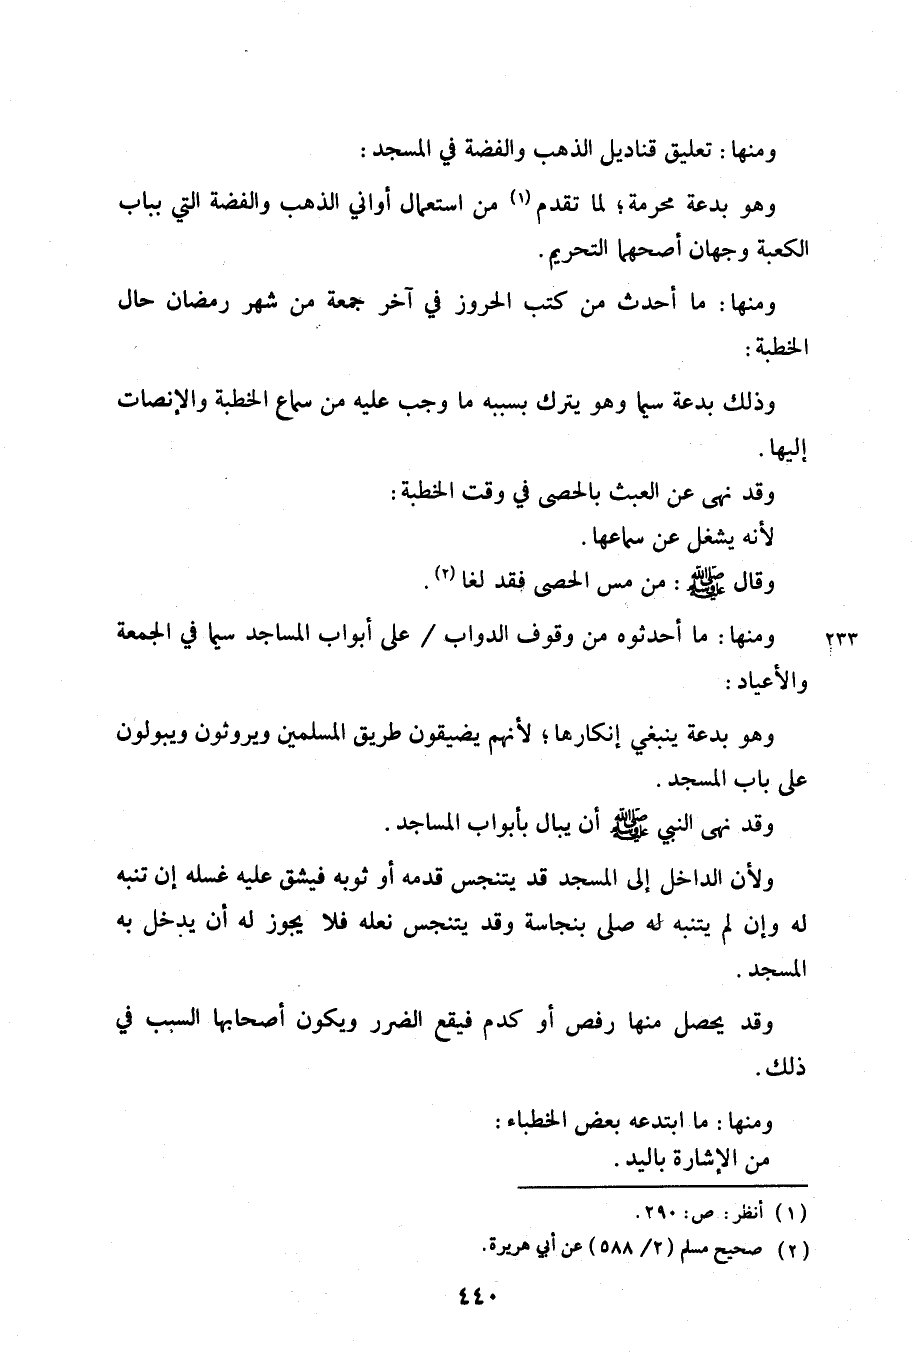 ومنها: تعليق قناديل الذهب والفضة في المسجد:
وهو بدعة محرمة؛ لما تقدم (١) من استعمال أواني الذهب والفضة التي بباب
الكعبة وجهان أصحهما التحريم.
ومنها: ما أحدث من كتب الحروز في آخر جمعة من شهر رمضان حال
الخطبة:
وذلك بدعة سيما وهو يترك بسببه ما وجب عليه من سماع الخطبة والإنصات
إليها.
وقد نهى عن العبث بالحصى في وقت الخطبة:
لأنه يشغل عن سماعها.
وقال ﷺ: من مس الحصى فقد لغا (٢).
ومنها: ما أحدثوه من وقوف الدواب / على أبواب المساجد سيما في الجمعة ٢٣٣
والأعياد:
وهو بدعة ينبغي إنكارها؛ لأنهم يضيقون طريق المسلمين ويروثون ويبولون
على باب المسجد.
وقد نهى النبي ﷺ أن يبال بأبواب المساجد.
ولأن الداخل إلى المسجد قد يتنجس قدمه أو ثوبه فيشق عليه غسله إن تنبه
له وإن لم يتنبه له صلى بنجاسة وقد يتنجس نعله فلا يجوز له أن يدخل به
المسجد.
وقد يحصل منها رفص أو كدم فيقع الضرر ويكون أصحابها السبب في
ذلك.
ومنها: ما ابتدعه بعض الخطباء:
من الإشارة باليد.
(١) أنظر: ص: ٢٩٠.
(٢) صحيح مسلم (٢/ ٥٨٨) عن أبي هريرة.
٤٤٠